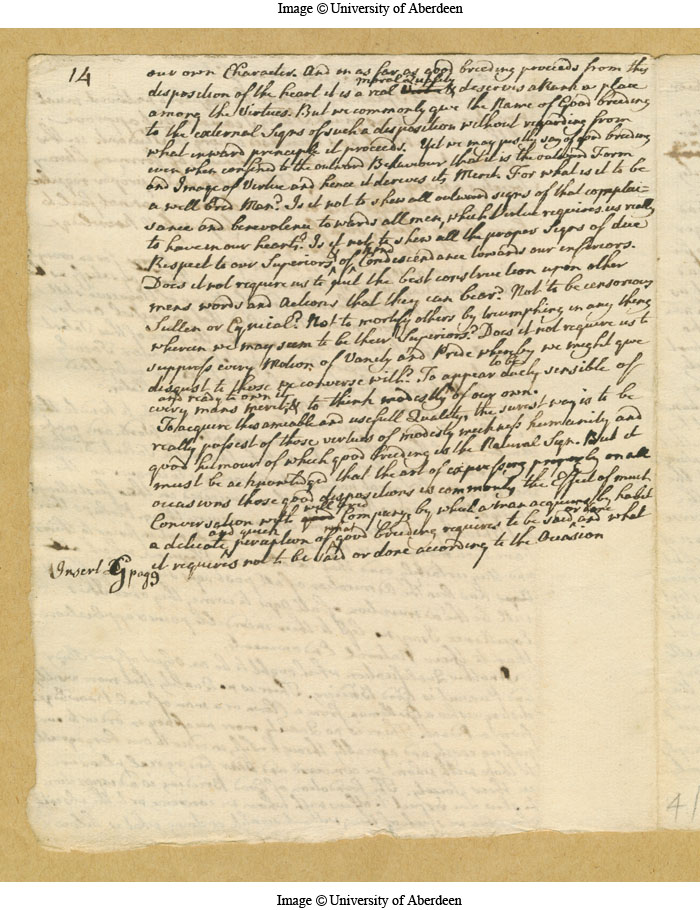 Image © University of Aberdeen
14
our own Character. And in as far as good breeding proceeds from this
moral Quality
disposition of the heart it is a real & deserves a Rank a place
among the Virtues. But we commonly give the Name of Good breeding
to the external Signs of such a disposition without regarding from
what inward principle it proceeds. Yet we may justly say of good breeding
even when confined to the outward Behaviour that it is the outward Form
and Image of Virtue and hence it derives its Merit. For what is it to be
a well bred Man? Is it not to shew all outward signs of that complai-
sance and benevolence towards all men, which Virtue requires us really
to have in our heart? Is it not to shew all the proper Signs of due
Respect to our Superiors, of Condescendance towards our inferiors.
Does it not require us to put the best construction upon other
mens words and Actions that they can bear? Not to be censorious
Sullen or Cynical? Not to mortify others by triumphing in any thing
wherein we may seem to be their Superiors? Does it not require us to
suppress every Motion of Vanity and Pride whereby we might give
to be
disgust to those we converse with? To appear duely sensible of
and ready to own it
every mans merit, & to think modestly of our own.
To acquire this amiable and usefull Quality, the surest way is to be
really possest of those virtues of modesty meekness humanity and
good humour of which good breeding is the Natural Sign. But it
must be acknowledged that the art of expressing properly on all
occasions those good dispositions is commonly the Effect of much
well bred
Conversation with Company, by what a man acquires by habit
and quick what or done
a delicate perception of good breeding requires to be said and what
it requires not to be said or done according to the Occasion
Insert G pag 9
4/
Image © University of Aberdeen